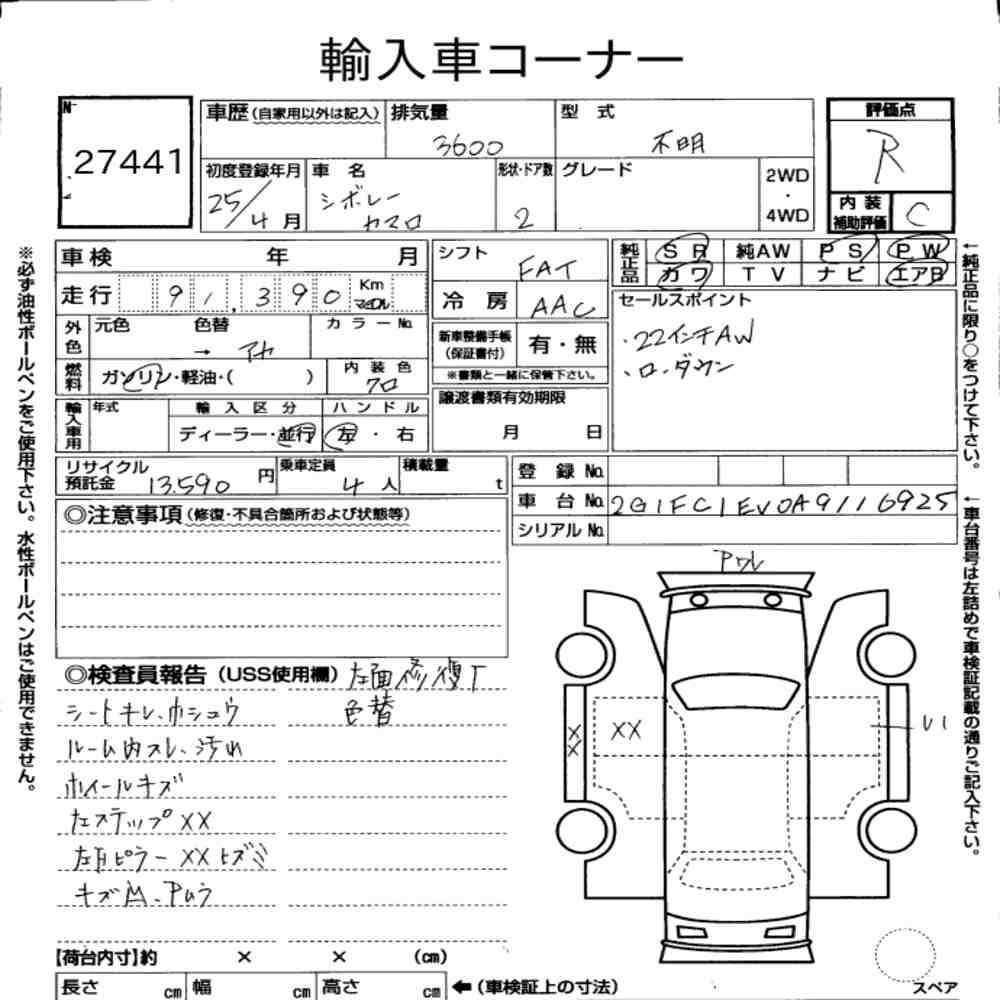 輸入車コーナー
No
27441
車歴 (自家用以外は記入)
排気量
3600
型式
不明
評価点
R
初度登録年月
25/4月
車名
シボレー
カマロ
形状・ドア数
2
グレード
2WD
・
4WD
内装
補助評価
C
※必ず油性ボールペンをご使用下さい。水性ボールペンはご使用できません。
車検 年 月
シフト
FAT
純正品
SR 純AW PS PW
カワ TV ナビ エアB
←純正品に限り○をつけて下さい。
走行 91,390 Km マイル
冷房 AAC
セールスポイント
・22インチAW
・ロ.ダウン
外色
元色 色替 カラーNo.
→
新車整備手帳
(保証書付)
有・無
※書類と一緒に保管下さい。
燃料
ガソリン・軽油・( )
内装色
70
譲渡書類有効期限
月 日
輸入車用
年式
輸入区分
ハンドル
ディーラー・並行
左・右
リサイクル
預託金 13.590円
乗車定員
4人
積載量
t
登録No.
車台No. 2G1FC1EV0A9116925
シリアルNo.
←車台番号は左詰めで車検証記載の通りご記入下さい。
◎注意事項 (修復・不具合箇所および状態等)
◎検査員報告 (USS使用欄)
左面修復下
色替
シートキレ.ホシュウ
ルーム内スレ.汚れ
ホイールキズ
左ステップXX
左Bピラー XXヒズミ
XX
X
X
【荷台内寸】約 × × (cm)
長さ cm 幅 cm 高さ cm
←(車検証上の寸法)
スペア